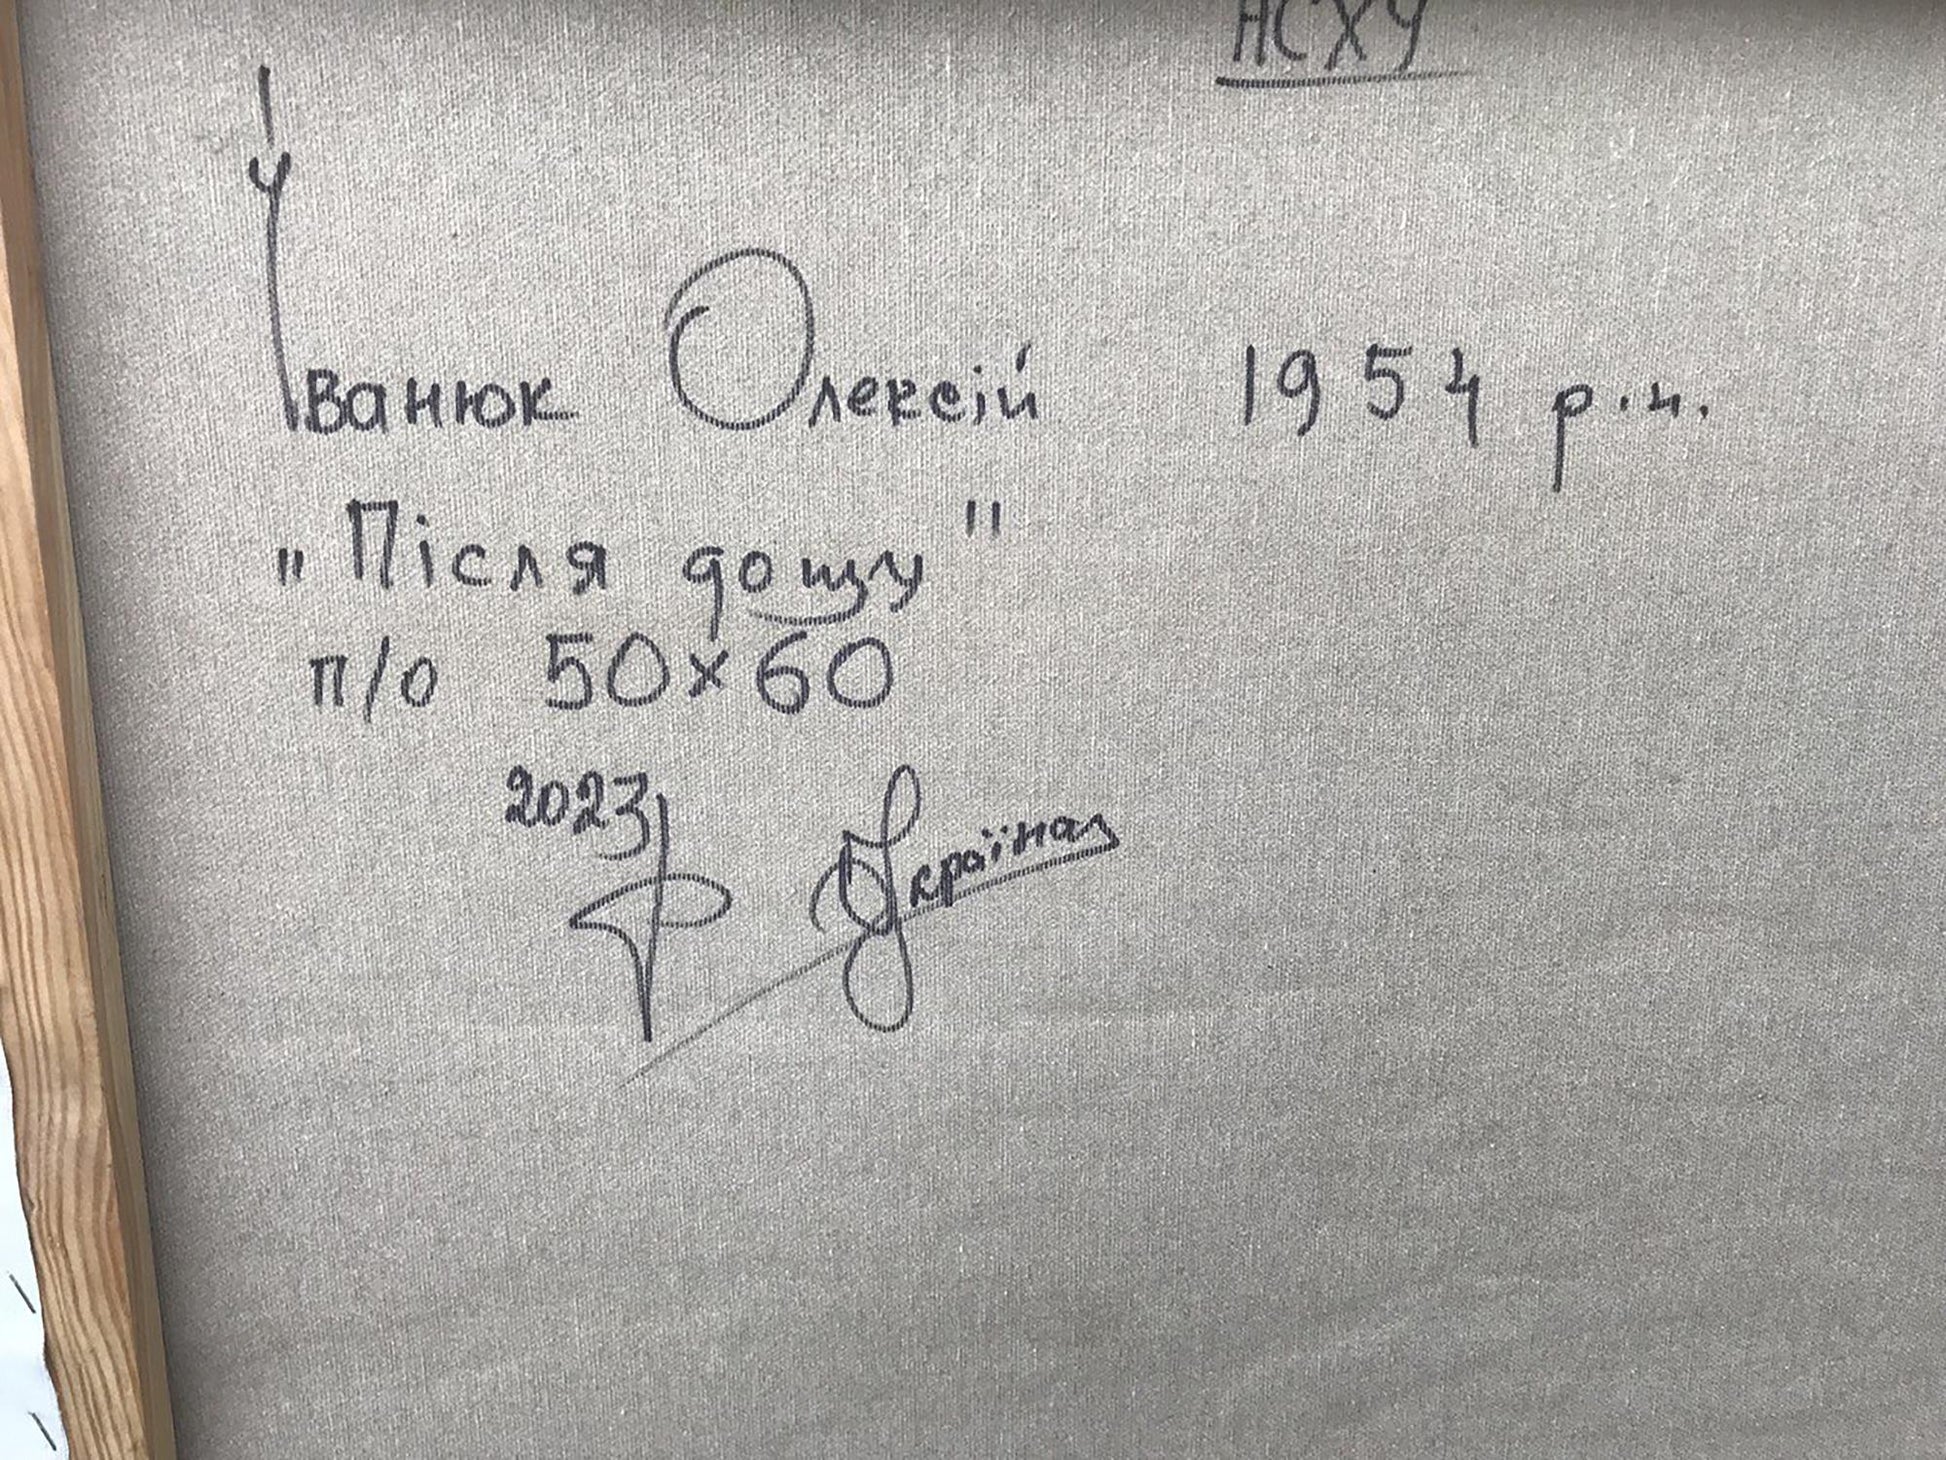 НСХУ
Іванюк Олексій 1954 р.н.
„Після дощу"
п/о 50×60
2023р Україна